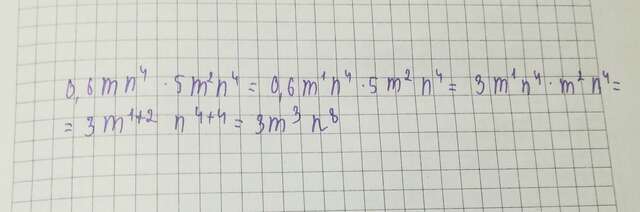 0,6mn⁴ · 5m²n⁴ = 0,6m¹n⁴ · 5m² n⁴ = 3m¹n⁴ · m² n⁴ =
= 3m¹⁺² n⁴⁺⁴ = 3m³ n⁸